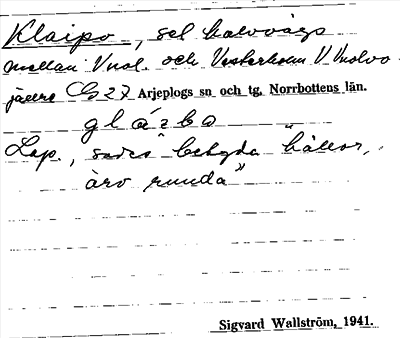 Klaipo, sel halvvägs
mellan Vuol. och Vesterholm V Vuolvo
jaure Cb 27 Arjeplogs sn och tg, Norrbottens län.
glázbo
Lap., sades betyda "hällar,
äro runda"
Sigvard Wallström, 1941.